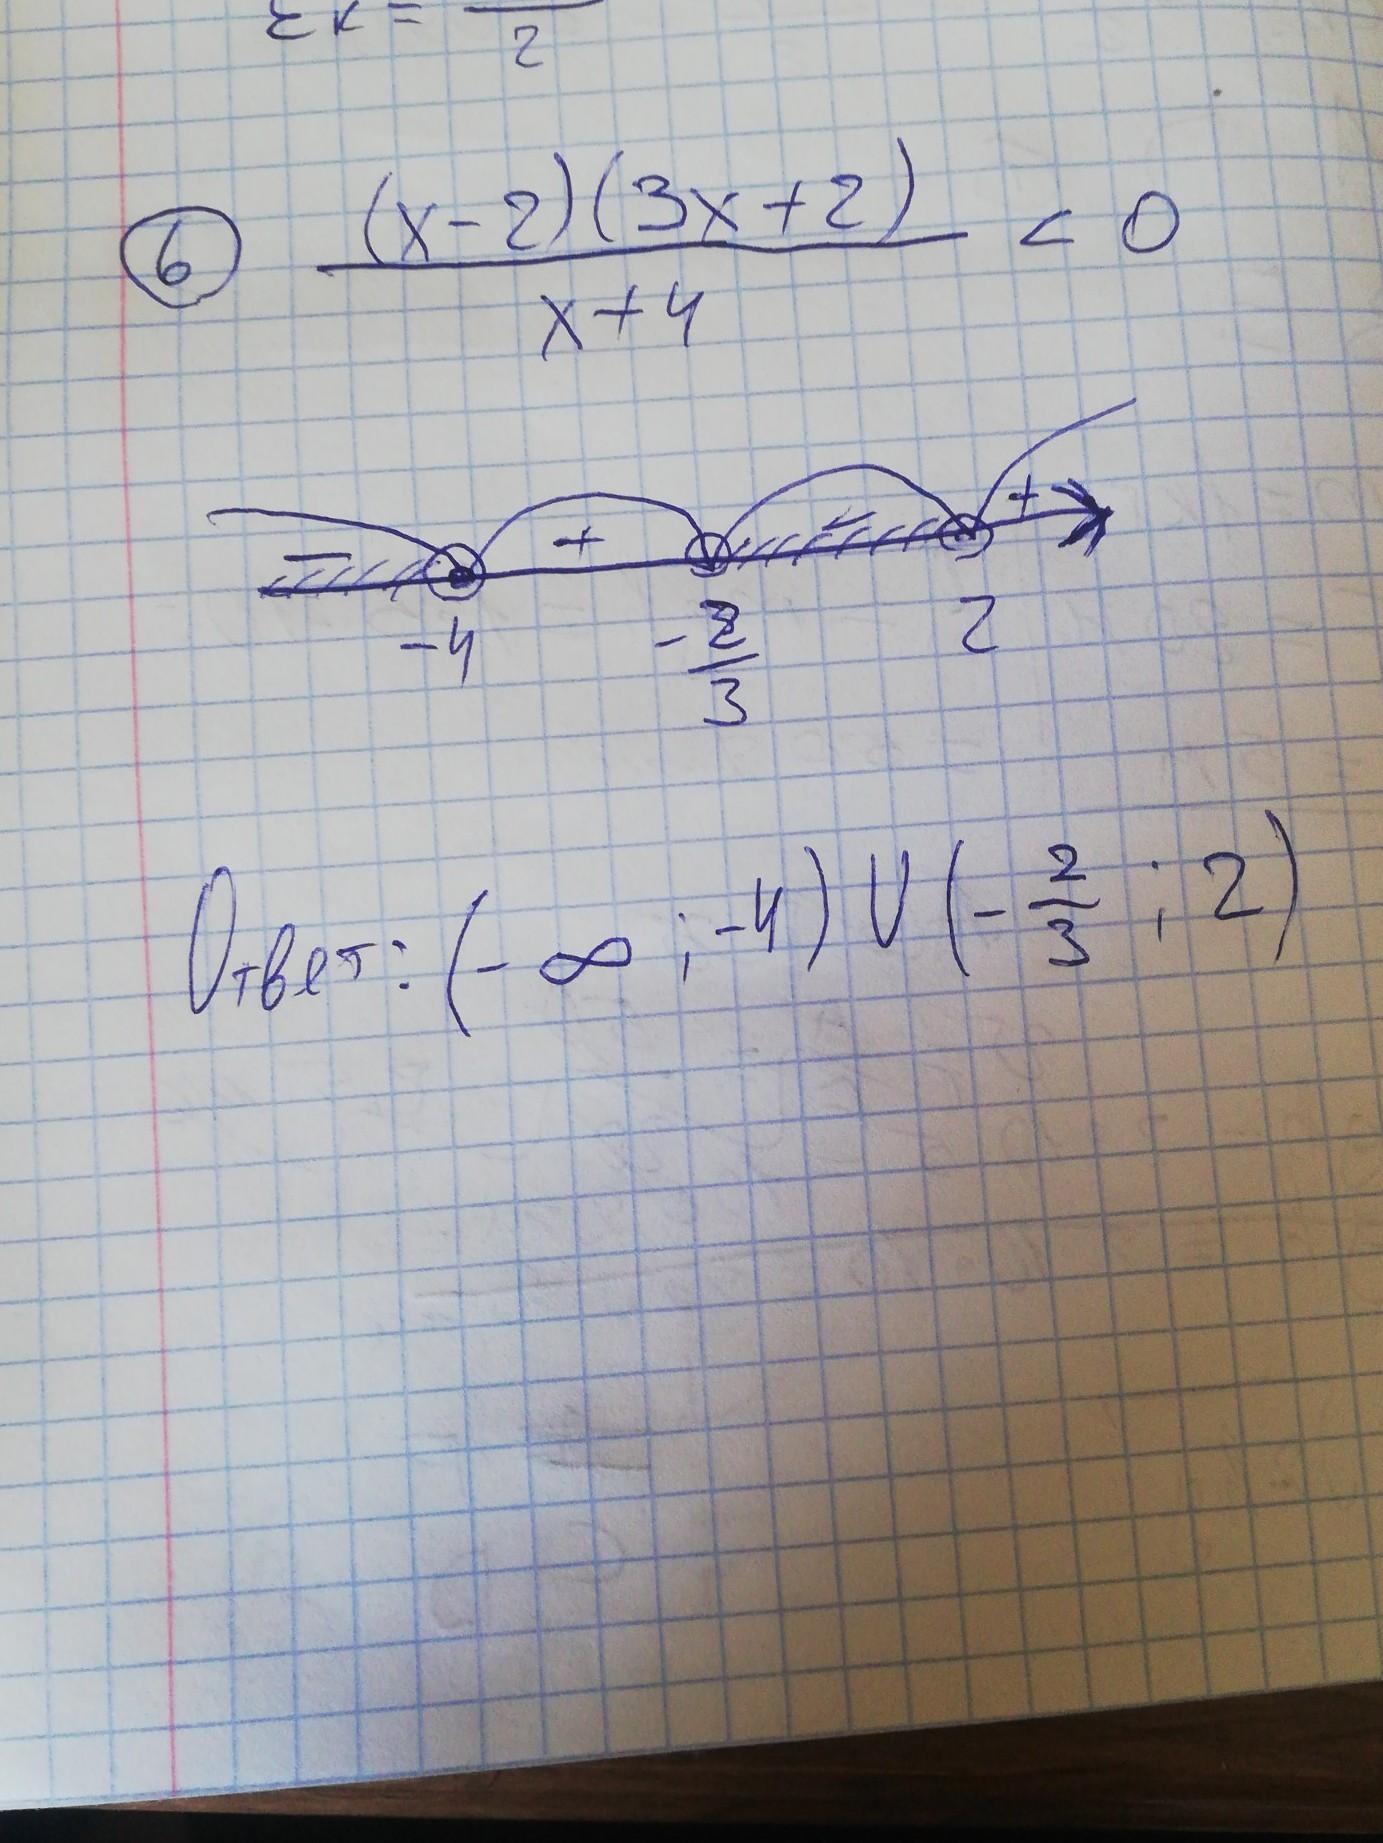 2
6 (x-2)(3x+2) < 0
x+4
- + - +
-4 -2/3 2
Ответ: (-∞; -4) U (-2/3; 2)